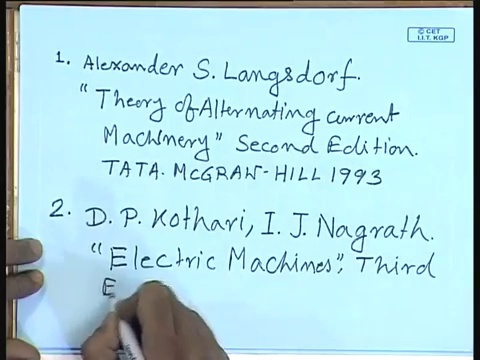 © CET
I.I.T. KGP
1. Alexander S. Langsdorf.
"Theory of Alternating current
Machinery" Second Edition.
TATA. McGRAW-HILL 1993
2. D. P. Kothari, I. J. Nagrath.
"Electric Machines", Third
E